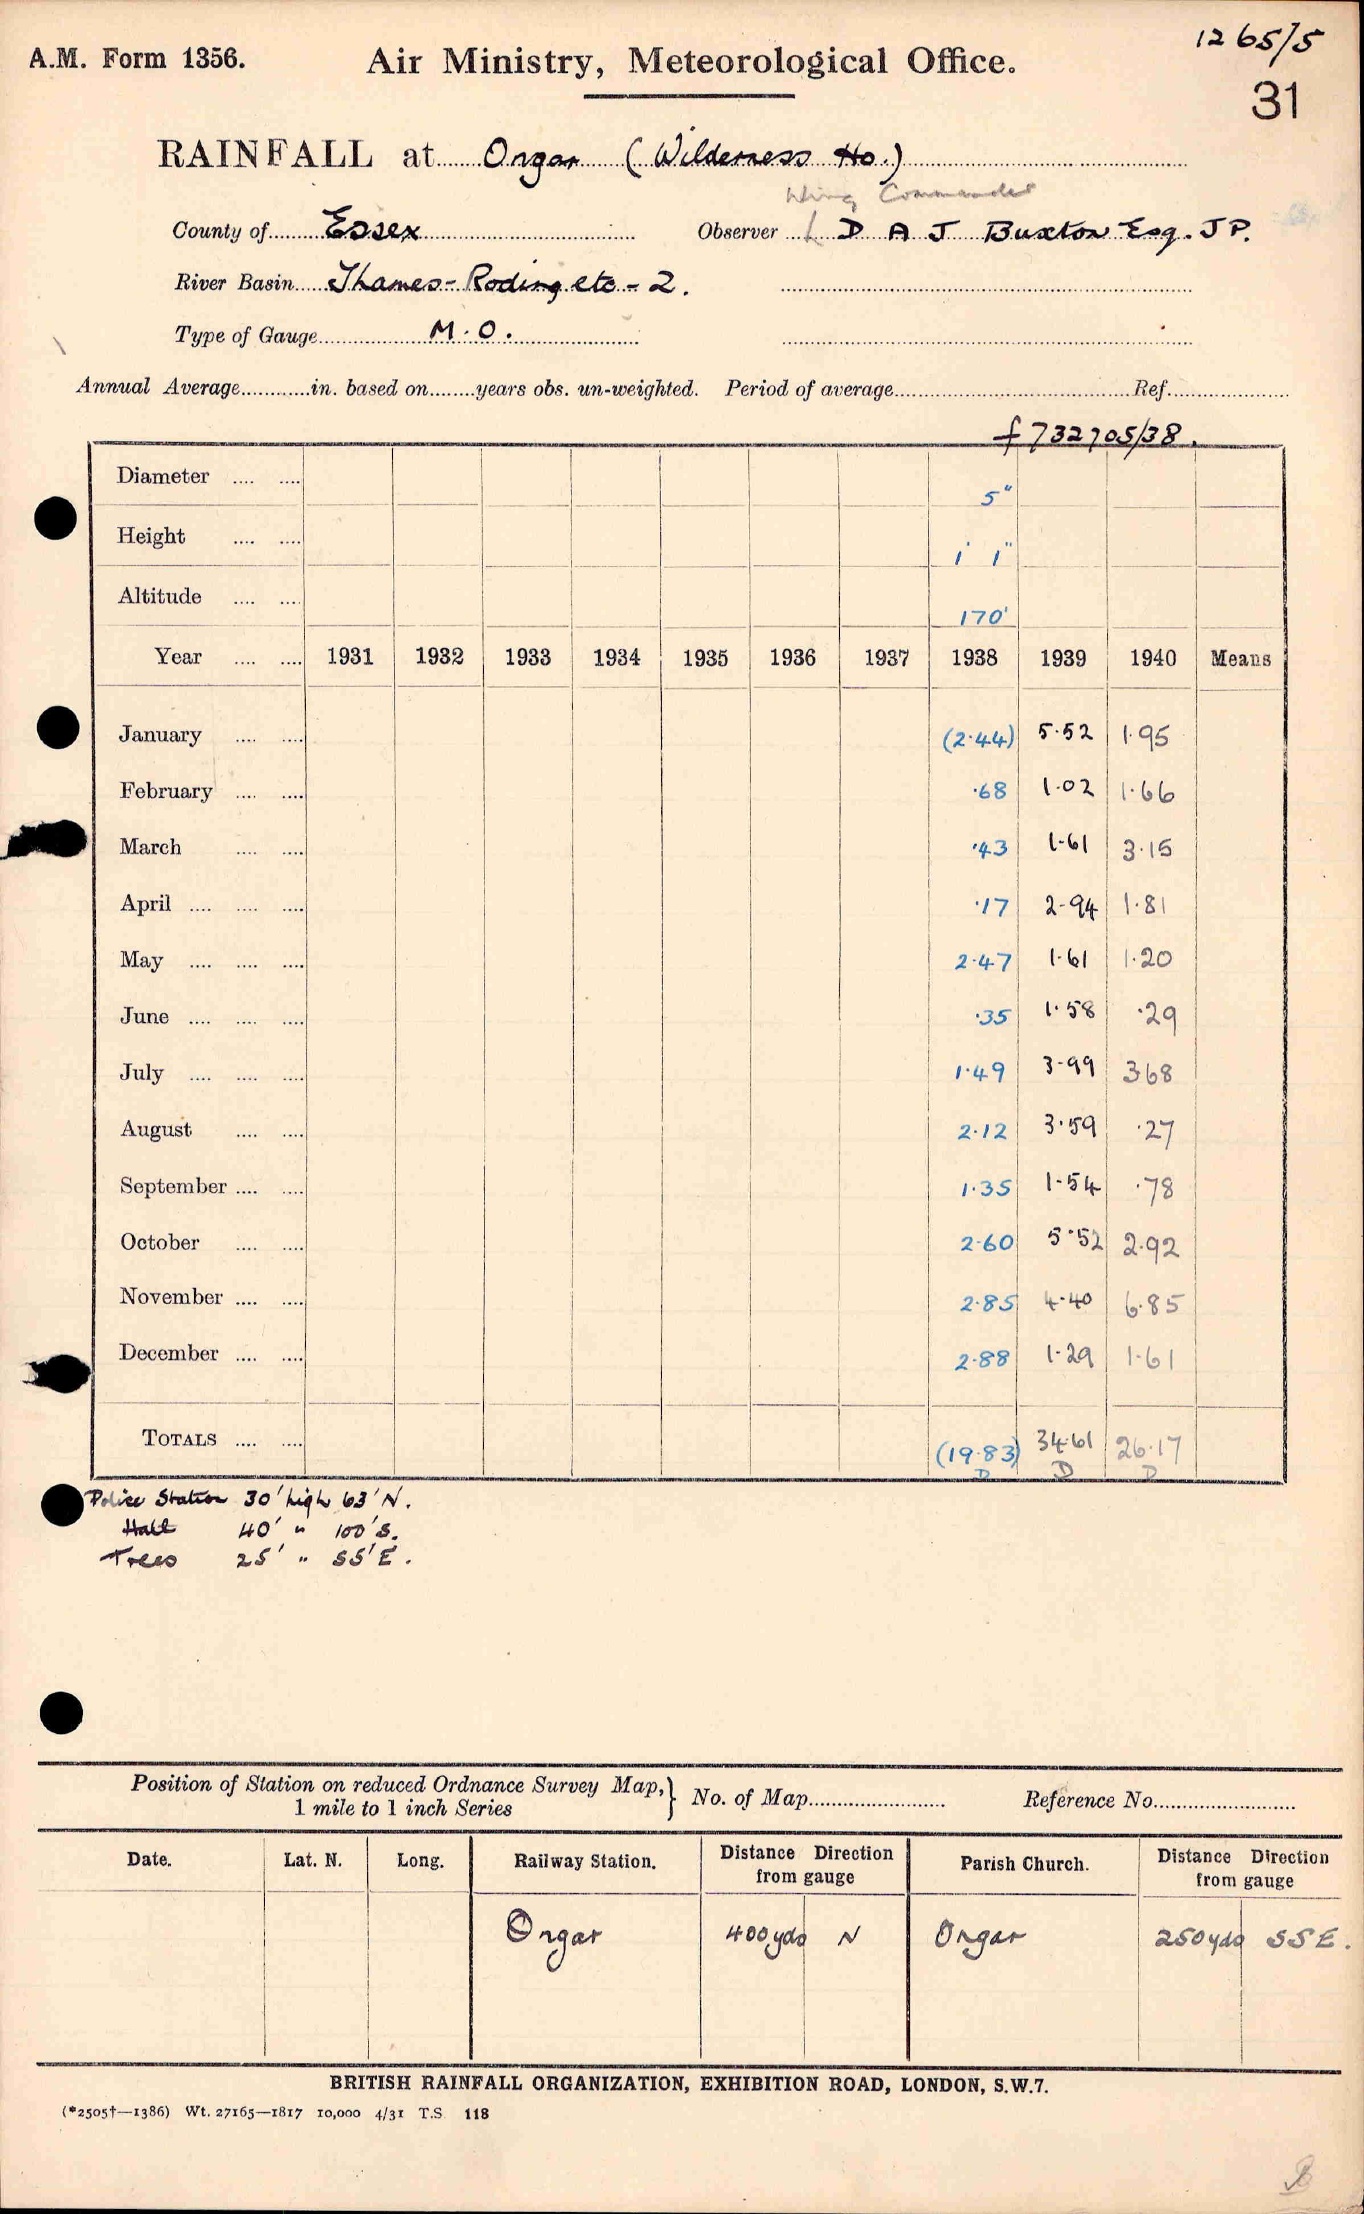 1265/5
A.M. Form 1356. Air Ministry, Meteorological Office.
31
RAINFALL at Ongar (Wilderness Ho.)
Wing Commander
County of Essex Observer D A J Buxton Esq. J P.
River Basin Thames - Roding etc - 2.
Type of Gauge M. O.
Annual Average in. based on years obs. un-weighted. Period of average Ref.
f 732705/38.
Diameter 5"
Height 1' 1"
Altitude 170'
Year 1931 1932 1933 1934 1935 1936 1937 1938 1939 1940 Means
January (2.44) 5.52 1.95
February .68 1.02 1.66
March .43 1.61 3.15
April .17 2.94 1.81
May 2.47 1.61 1.20
June .35 1.58 .29
July 1.49 3.99 368
August 2.12 3.59 .27
September 1.35 1.54 .78
October 2.60 5.52 2.92
November 2.85 4.40 6.85
December 2.88 1.29 1.61
TOTALS (19.83) 34.61 26.17
D D D
Police Station 30' high 63' N.
Hall 40' " 100' S.
Trees 25' " 55' E.
Position of Station on reduced Ordnance Survey Map,} No. of Map Reference No.
1 mile to 1 inch Series
Date. Lat. N. Long. Railway Station. Distance Direction from gauge Parish Church. Distance Direction from gauge
Ongar 400yds N Ongar 250yds SSE.
BRITISH RAINFALL ORGANIZATION, EXHIBITION ROAD, LONDON, S.W.7.
(*2505†—1386) Wt. 27165—1817 10,000 4/31 T.S. 118